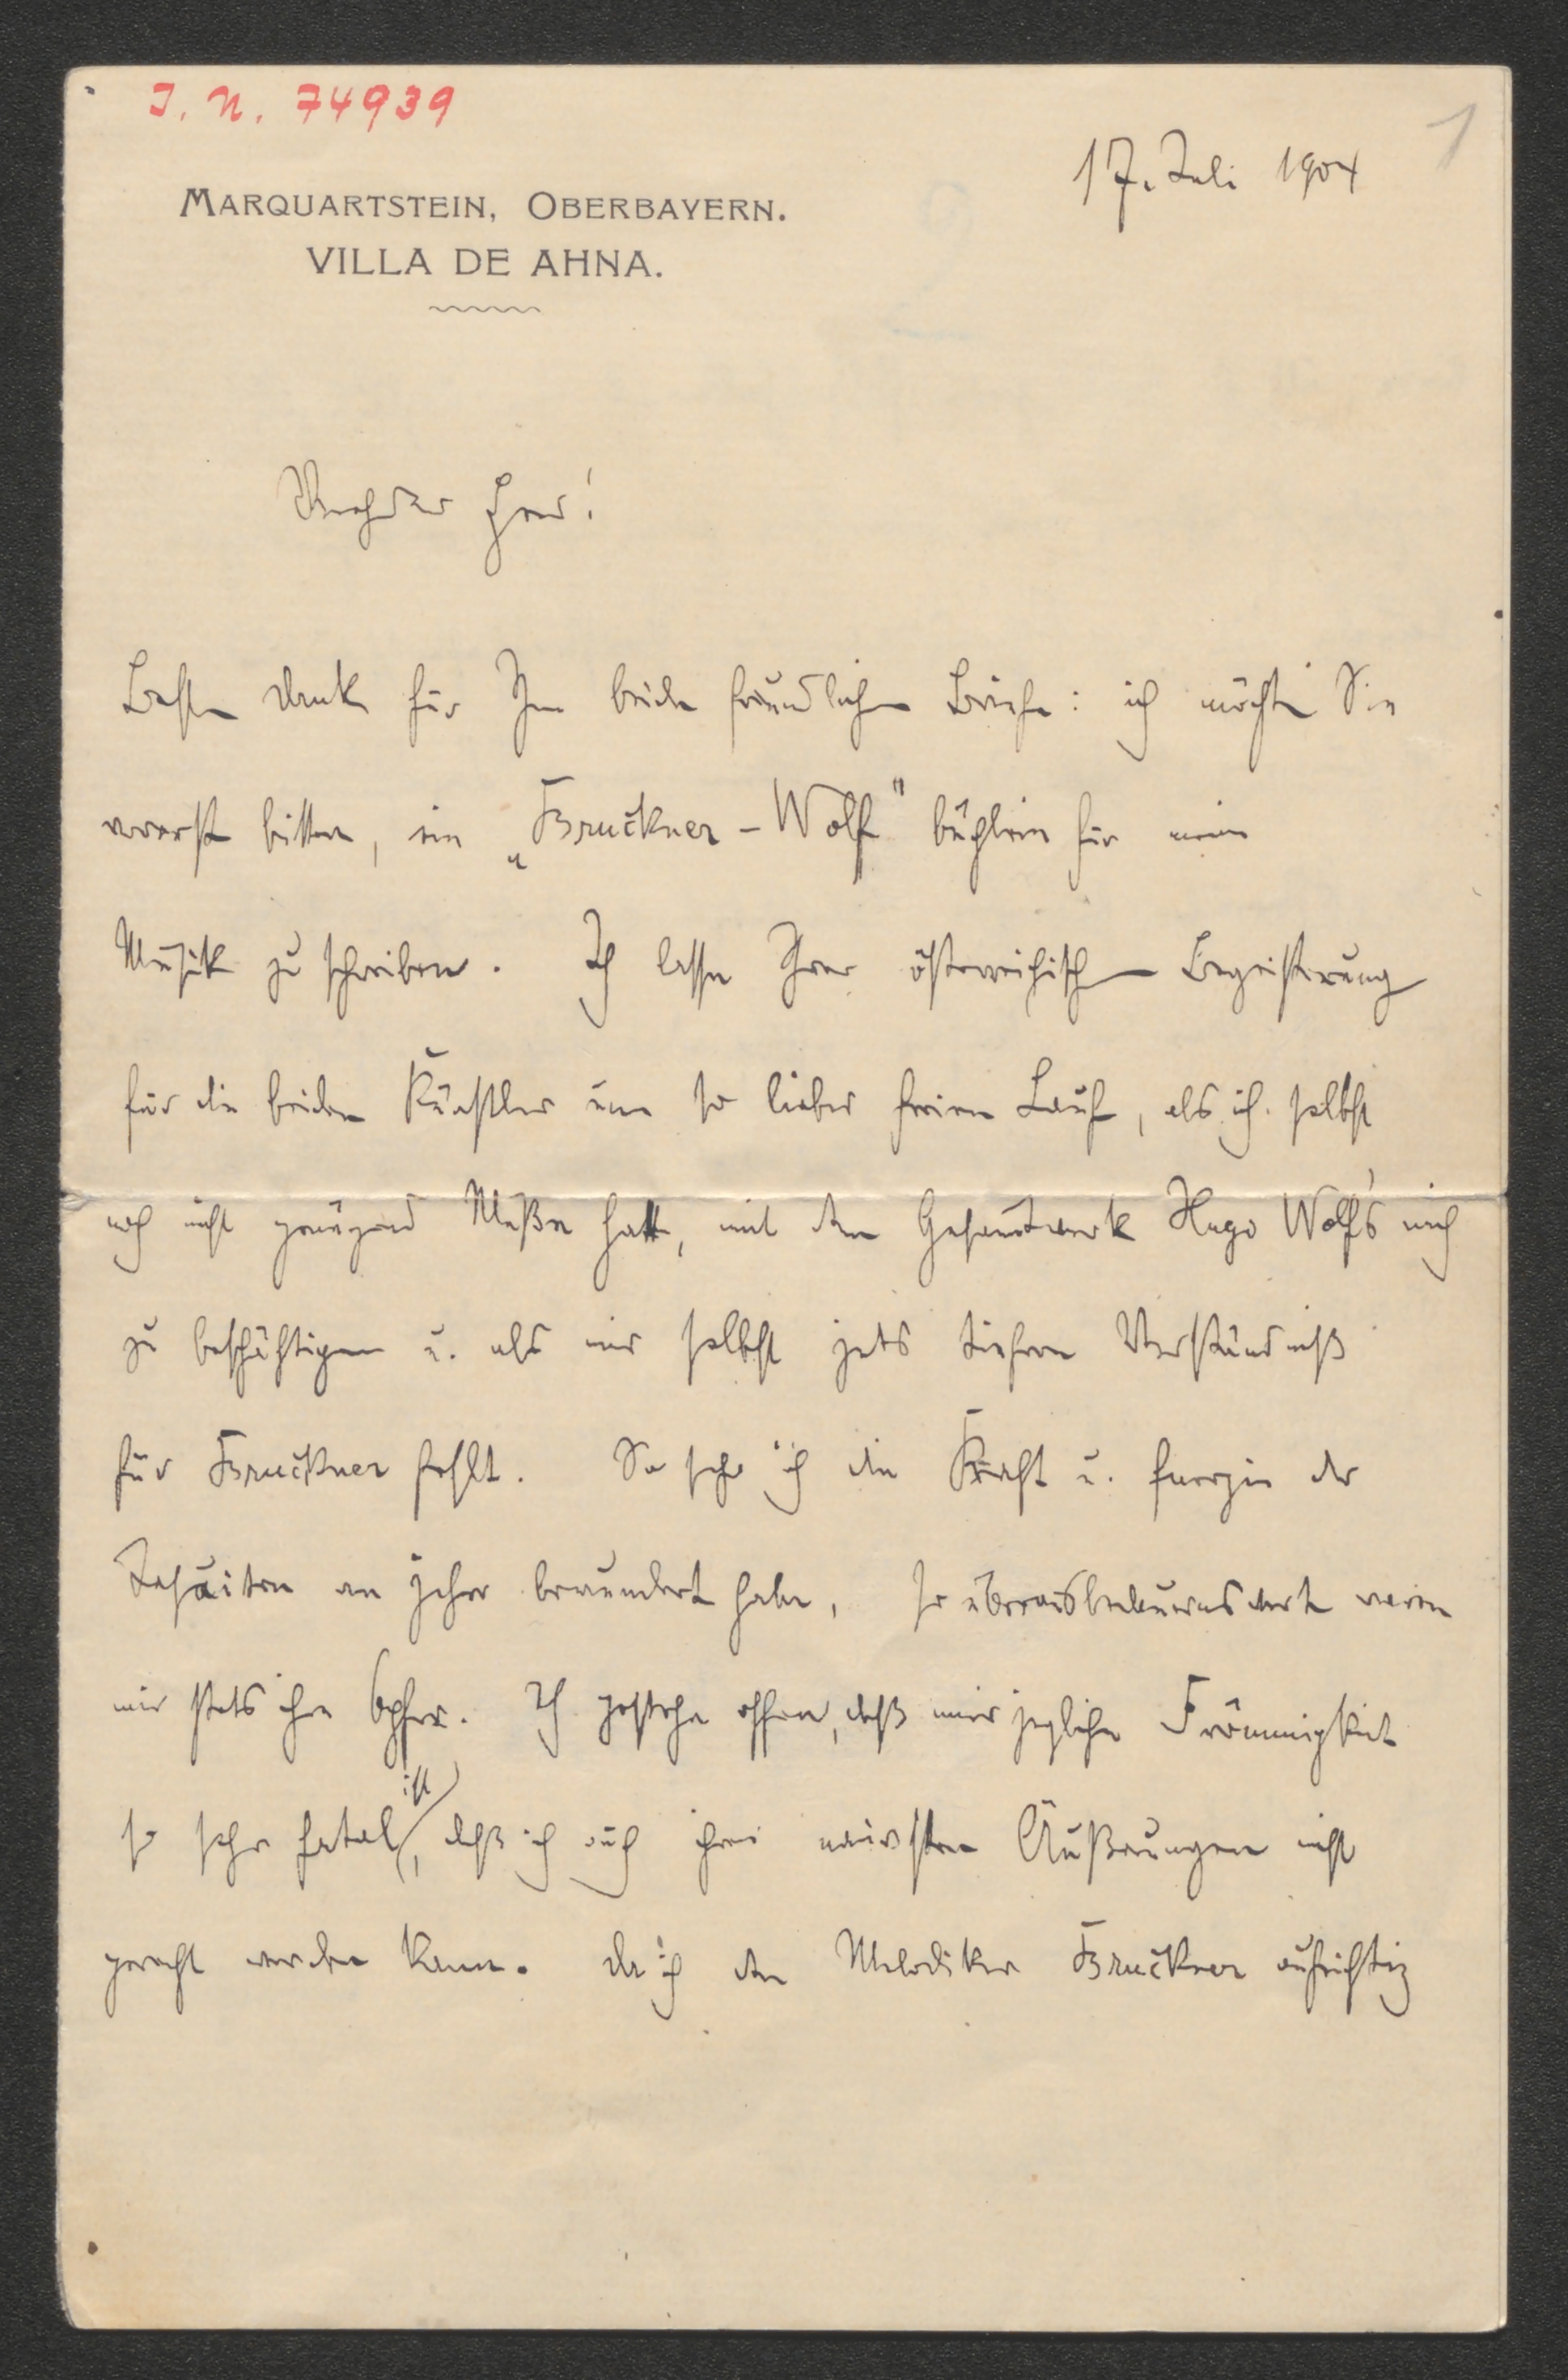 J. N. 74939
1
17. Juli 1904
MARQUARTSTEIN, OBERBAYERN.
VILLA DE AHNA.
Verehrter Herr!
Besten Dank für Ihre beiden freundlichen Briefe: ich möchte Sie
vorerst bitten, ein „Bruckner – Wolf" büchlein für meine
Musik zu schreiben. Ich lasse Ihrer österreichischen Begeisterung
für die beiden Künstler um so lieber freien Lauf, als ich selbst
noch nicht genügend Muße hatte, mit dem Gesamtwerk Hugo Wolf's mich
zu beschäftigen u. als mir selbst jedes tiefere Verständniß
für Bruckner fehlt. So sehr ich die Kraft u. Energie der
Jesuiten von jeher bewundert habe, so überaus bedauernswert waren
mir stets ihre Opfer. Ich gestehe offen, daß mir jegliche Frömmigkeit
so sehr fatal ist, daß ich auch ihren naivsten Äußerungen nicht
gerecht werden kann. Da ich den Melodiker Bruckner aufrichtig